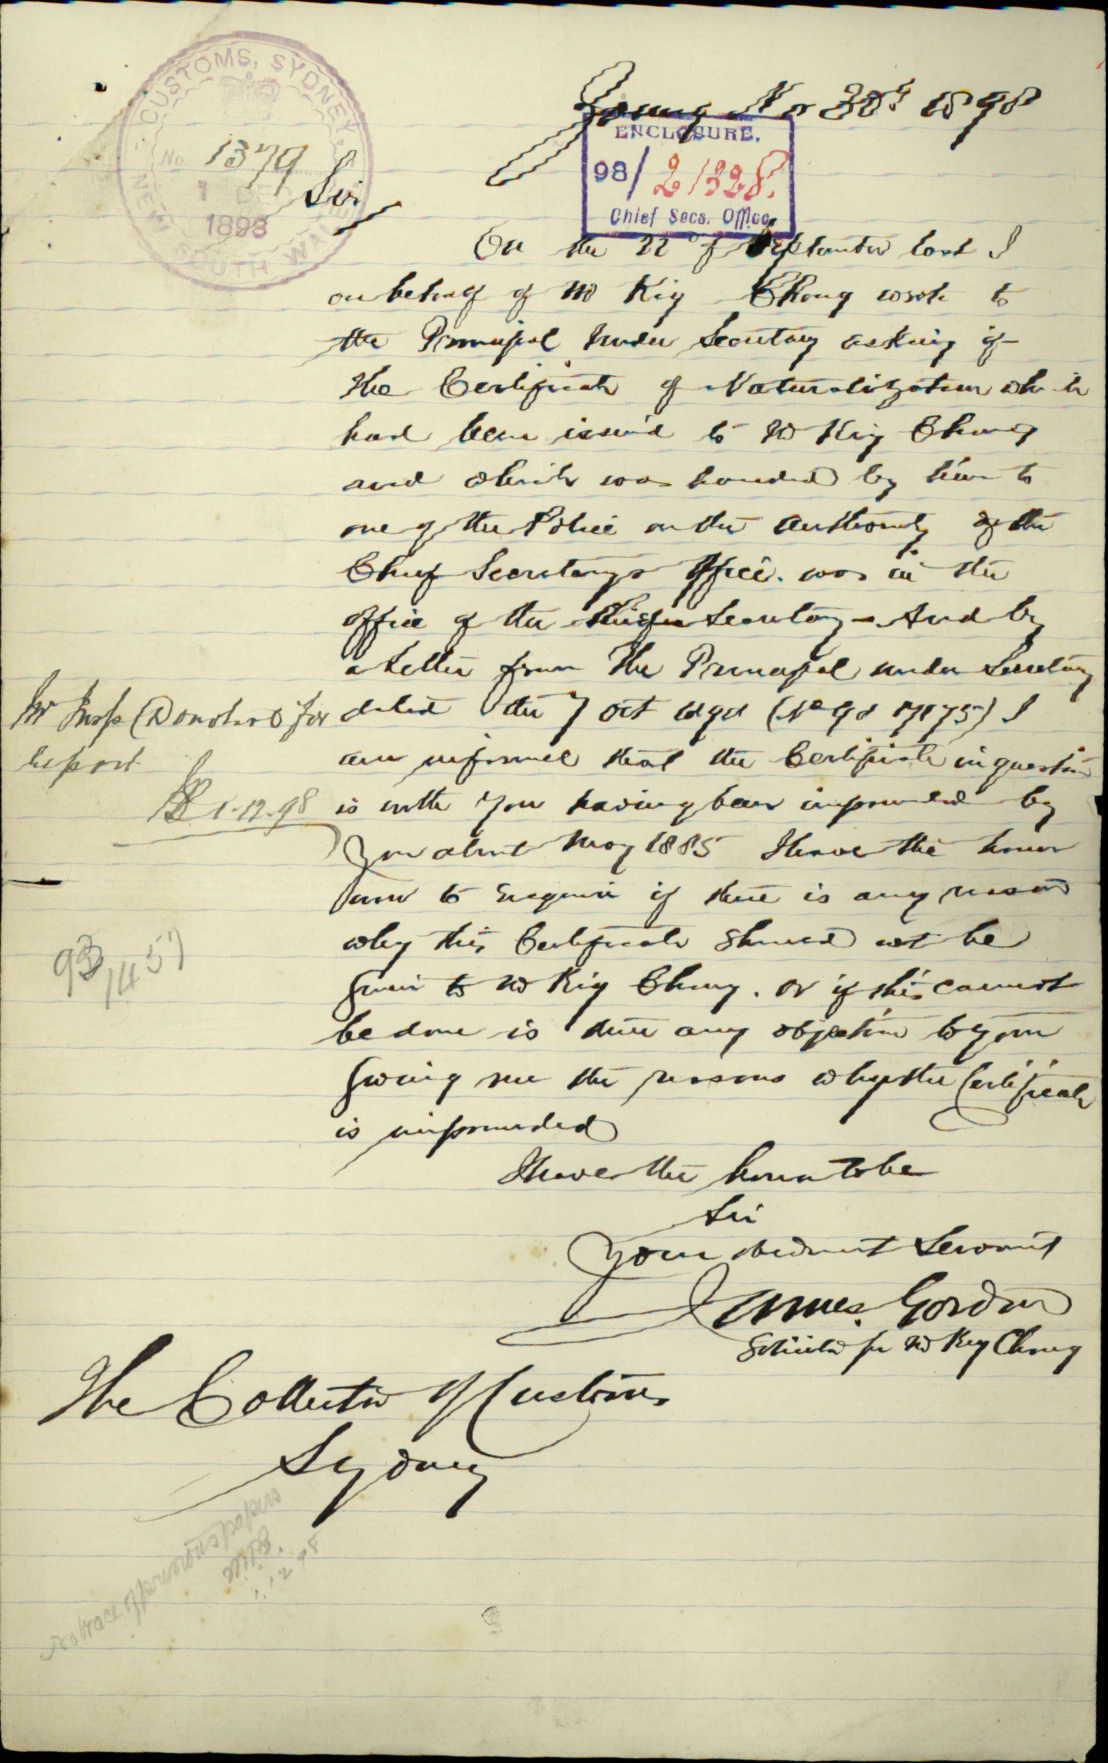 CUSTOMS, SYDNEY
NEW SOUTH WALES
No. 1379
1 DE
1898
Young Nov 30th 1898
ENCLOSURE.
98/21328.
Chief Secs. Office
Sir
On the 22 of September last I
on behalf of W Kig Chong wrote to
the Principal Under Secretary asking if
the Certificate of Naturalization which
had been issued to W Kig Chong
and which was handed by him to
one of the Police on the authority of the
Chief Secretarys Office. was in the
office of the Chief Secretary - And by
a letter from The Principal under Secretary
dated the 7 Oct 1898 (No 98 17175) I
am informed that the Certificate in question
is with you having been impounded by
you about May 1885 I have the honor
now to enquire if there is any reason
why this Certificate should not be
given to W Kig Chong. or if this cannot
be done is there any objection to your
giving me the reasons why the Certificate
is impounded
I have the honor to be
Sir
Your obedient Servant
James Gordon
Solicitor for W Kig Chong
The Collector of Customs
Sydney
Mr Insp (Donohoe) for
report
1.12.98
93/1457
no trace of previous papers
1.12.98